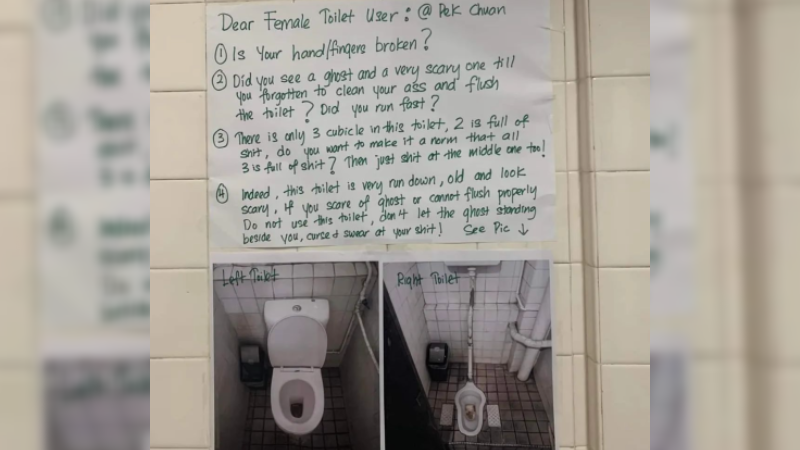 Dear Female Toilet User : @ Pek Chuan
① Is Your hand/fingers broken?
② Did you see a ghost and a very scary one till
you forgotten to clean your ass and flush
the toilet? Did you run fast?
③ There is only 3 cubicle in this toilet, 2 is full of
shit, do you want to make it a norm that all
3 is full of shit? Then just shit at the middle one too!
④ Indeed, this toilet is very run down, old and look
scary, if you scare of ghost or cannot flush properly
Do not use this toilet, don't let the ghost standing
beside you, curse & swear at your shit! See Pic ↓
Left Toilet
Right Toilet